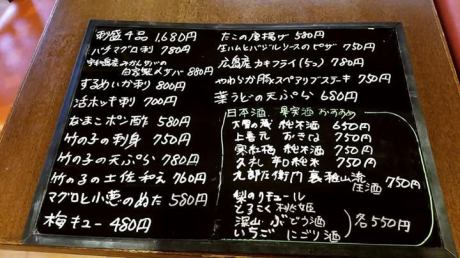 刺盛4品 1,680円
バチマグロ刺 780円
宇和島産みかんサバの
自家製〆サバ 880円
するめいか刺 800円
活ホッキ刺 700円
なまこポン酢 580円
竹の子の刺身 750円
竹の子の天ぷら 780円
竹の子の土佐和え 760円
マグロと小葱のぬた 580円
梅キュー 480円
たこの唐揚げ 580円
生ハムとバジルソースのピザ 750円
広島産カキフライ(5コ) 780円
やわらか豚スペアリブステーキ 750円
葉うどの天ぷら 680円
日本酒、果実酒おすすめ
純米酒 650円
上喜元 おきな 750円
寒紅梅 純米酒 750円
久礼 辛口純米 750円
九郎左衛門 裏雅山流
生酒 750円
梨のリキュール
とろこく桃姫
深山ぶどう酒
いちご にごり酒
各550円